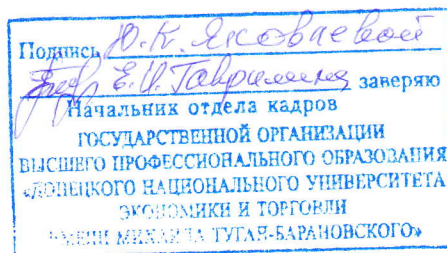 Подпись Ю.К. Яковлевой
Е.И. Гаврилина заверяю
Начальник отдела кадров
ГОСУДАРСТВЕННОЙ ОРГАНИЗАЦИИ
ВЫСШЕГО ПРОФЕССИОНАЛЬНОГО ОБРАЗОВАНИЯ
«ДОНЕЦКОГО НАЦИОНАЛЬНОГО УНИВЕРСИТЕТА
ЭКОНОМИКИ И ТОРГОВЛИ
ИМЕНИ МИХАИЛА ТУГАН-БАРАНОВСКОГО»